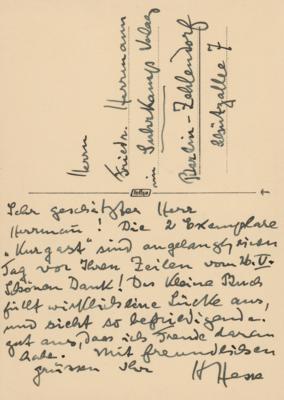 Herrn
Friedr. Herrmann
im Suhrkamp Verlag
Berlin-Zehlendorf
Schützallee 7
Sehr geschätzter Herr
Herrmann! Die 2 Exemplare
„Kurgast" sind angelangt, einen
Tag vor Ihren Zeilen vom 26.V.
Schönen Dank! Das kleine Buch
füllt wirklich eine Lücke aus,
und sieht so befriedigend
gut aus, dass ich Freude daran
habe. Mit freundlichen
grüssen Ihr
H Hesse